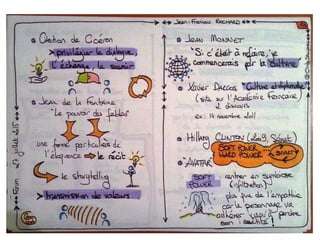 Jean-François RICHARD
Citation de Cicéron
privilégier le dialogue,
l'échange, le savoir
Jean de la Fontaine
"Le pouvoir des fables"
une forme particulière de
l'éloquence → le récit
le storytelling
transmission de valeurs...
Jean MONNET
"Si c'était à refaire, je
commencerais par la culture"
Xavier DARCOS "Culture et diplomatie"
(site sur l'Académie Française)
2 discours
ex: 14 novembre 2011
Hillary CLINTON (2009, Sénat)
SOFT POWER
HARD POWER
SMART
"AVATAR"
SOFT
POWER
rentrer en symbiose
(infiltration)
plus que de l'empathie
car le personnage va
adhérer jusqu'à perdre
son identité!